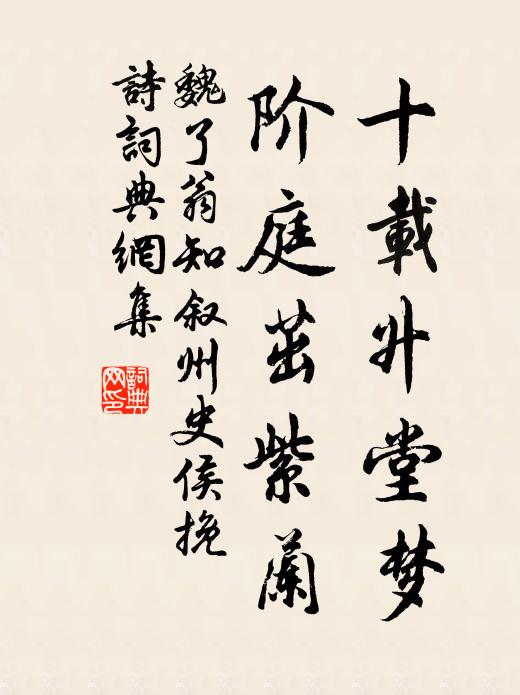 十載升堂梦
阶庭茁紫蘭
魏了翁知叙州史侯挽
詩詞典網集
詞典网印